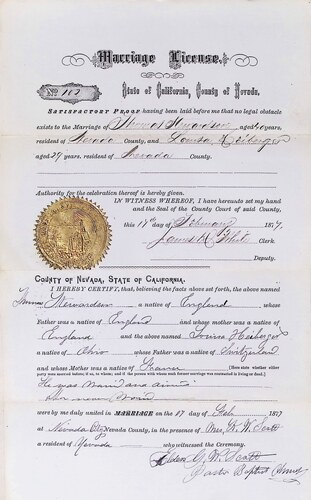 Marriage License.
No 102
State of California, County of Nevada.
SATISFACTORY PROOF having been laid before me that no legal obstacle
exists to the Marriage of Thomas aged years,
resident of Nevada County, and Louisa Heiberger
aged 29 years, resident of Nevada County.
Authority for the celebration thereof is hereby given.
IN WITNESS WHEREOF, I have hereunto set my hand
and the Seal of the County Court of said County,
this 17th day of February 1877
James K White Clerk.
Deputy.
COUNTY OF NEVADA, STATE OF CALIFORNIA.
I HEREBY CERTIFY, that, believing the facts above set forth, the above named
Thomas a native of England, whose
Father was a native of England and whose mother was a native of
England and the above named Louisa Heiberger
a native of Ohio whose Father was a native of Switzerland
and whose Mother was a native of France [Here state whether either
party were married before, if so, to whom; and if the person with whom such former marriage was contracted is living or dead.]
He was
her never
were by me duly united in MARRIAGE on the 17 day of Feb. 1877
at Nevada City Nevada County, in the presence of Mrs. W. W. Scott
a resident of Nevada who witnessed the Ceremony.
Elder G. W. Scott
Pastor Baptist Church